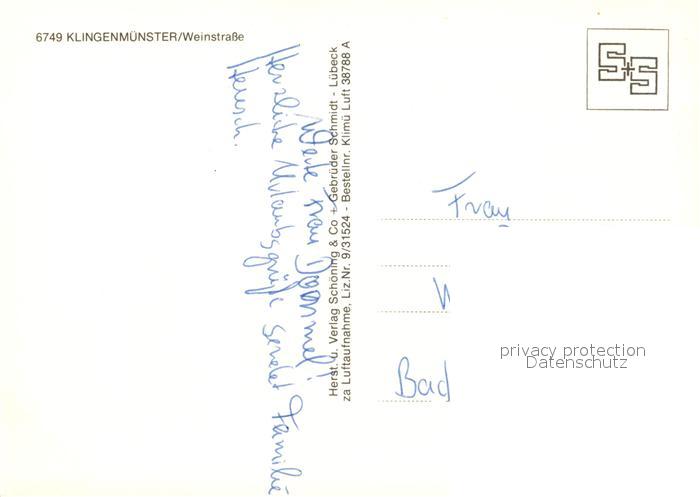 6749 KLINGENMÜNSTER/Weinstraße
Herst. u. Verlag Schöning & Co + Gebrüder Schmidt - Lübeck
za Luftaufnahme, Liz.Nr. 9/31524 - Bestellnr. Klimü Luft 38788 A
S+S
Frau
Herzliche Urlaubsgrüße sendet Familie
Frau
Bad
privacy protection
Datenschutz